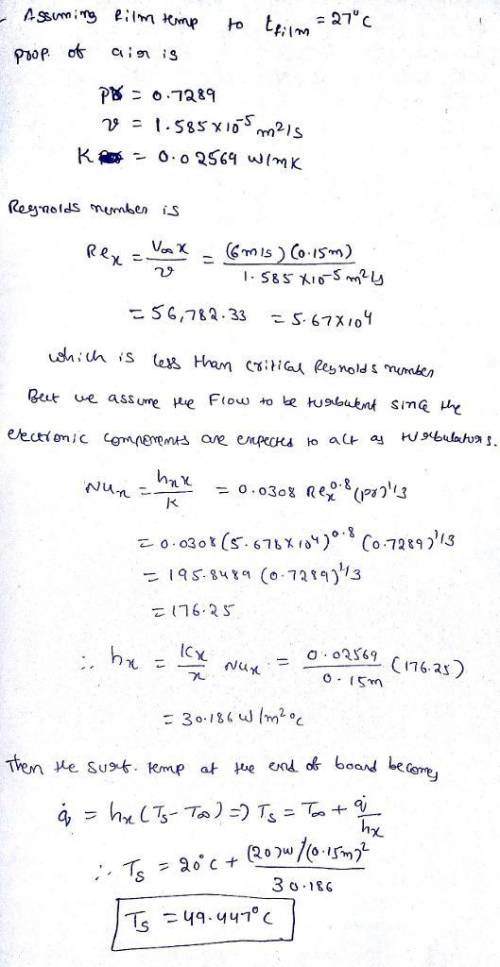 - Assuming film temp to tfilm = 27°C
prop. of air is
Pr = 0.7289
ν = 1.585×10⁻⁵ m²/s
K = 0.02569 W/mK
Reynolds number is
Reₓ = V∞x/ν = (6m/s)(0.15m)/1.585×10⁻⁵ m²/s
= 56,782.33 = 5.67×10⁴
which is less than critical Reynolds number
But we assume the Flow to be turbulent since the
electronic components are expected to act as turbulators.
Nuₓ = hₓx/K = 0.0308 Reₓ^0.8 (pr)^1/3
= 0.0308 (5.678×10⁴)^0.8 (0.7289)^1/3
= 195.8489 (0.7289)^1/3
= 176.25
∴ hₓ = Kₓ/x Nuₓ = 0.02569/0.15m (176.25)
= 30.186 W/m²°c
Then the surf. temp at the end of board becomes
q̇ = hₓ(Ts-T∞) => Ts = T∞ + q̇/hₓ
∴ Ts = 20°C + (20)W/(0.15m)²/30.186
Ts = 49.447°C